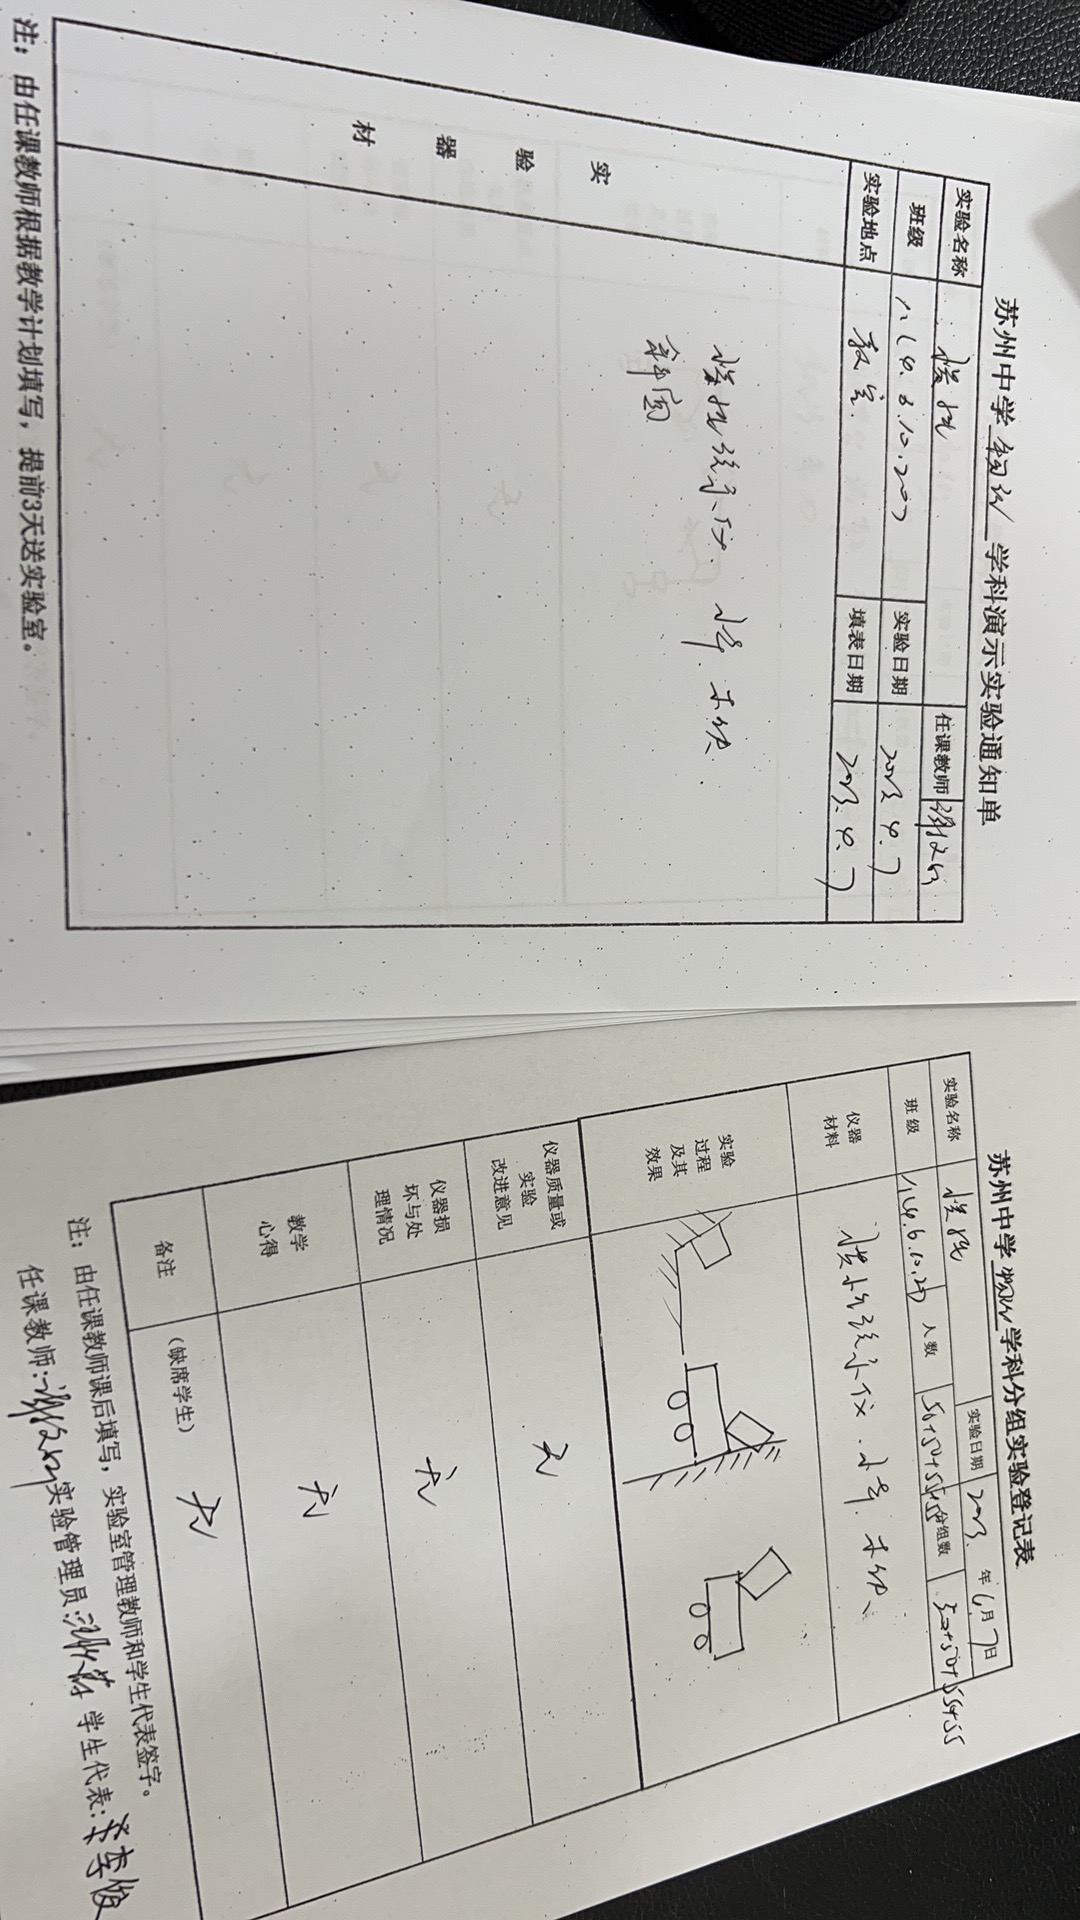 苏州中学 物理 学科演示实验通知单
实验名称 惯性 任课教师
班级 八(4.6.10.20) 实验日期 2023.4.7
实验地点 教室 填表日期 2023.4.7
实验器材
惯性演示仪. 小车. 木块.
注：由任课教师根据教学计划填写，提前3天送实验室。
苏州中学 物理 学科分组实验登记表
实验名称 惯性 实验日期 2023. 年 月 7日
班级 人数 分组数 50+50+55+55
仪器材料 惯性演示仪. 小车. 木块.
实验过程及其效果
仪器质量或实验改进意见 无
仪器损坏与处理情况 无
教学心得 无
备注 （缺席学生） 无
注：由任课教师课后填写，实验室管理教师和学生代表签字。
任课教师: 实验管理员: 学生代表: